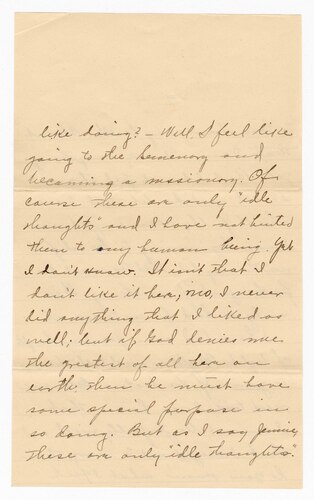 like doing? - Well, I feel like
going to the Semenery and
becoming a missionary. Of
course these are only "idle
thoughts" and I have not hinted
them to any human being. Yet
I don't know. It isn't that I
don't like it here; no, I never
did anything that I liked as
well; but if God denies me
the greatest of all here on
earth, then he must have
some special purpose in
so doing. But as I say Jennie,
these are only "idle thoughts."